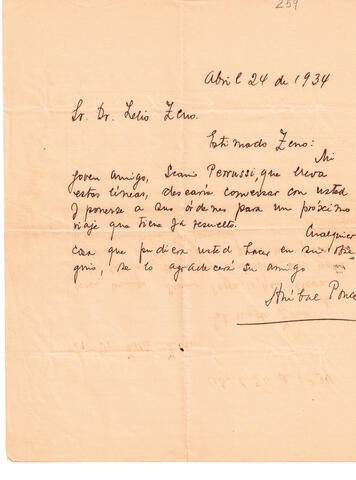 259
Abril 24 de 1934
Sr. Dr. Lelio Zeno.
Estimado Zeno:
Mi
joven amigo, Perrussi, que lleva
estas líneas, desearía conversar con usted
y ponerse a sus órdenes para un próximo
viaje que tiene ya resuelto.
Cualquier
cosa que pudiera usted hacer en su obse
quio, se lo agradecerá su amigo
Aníbal Ponce